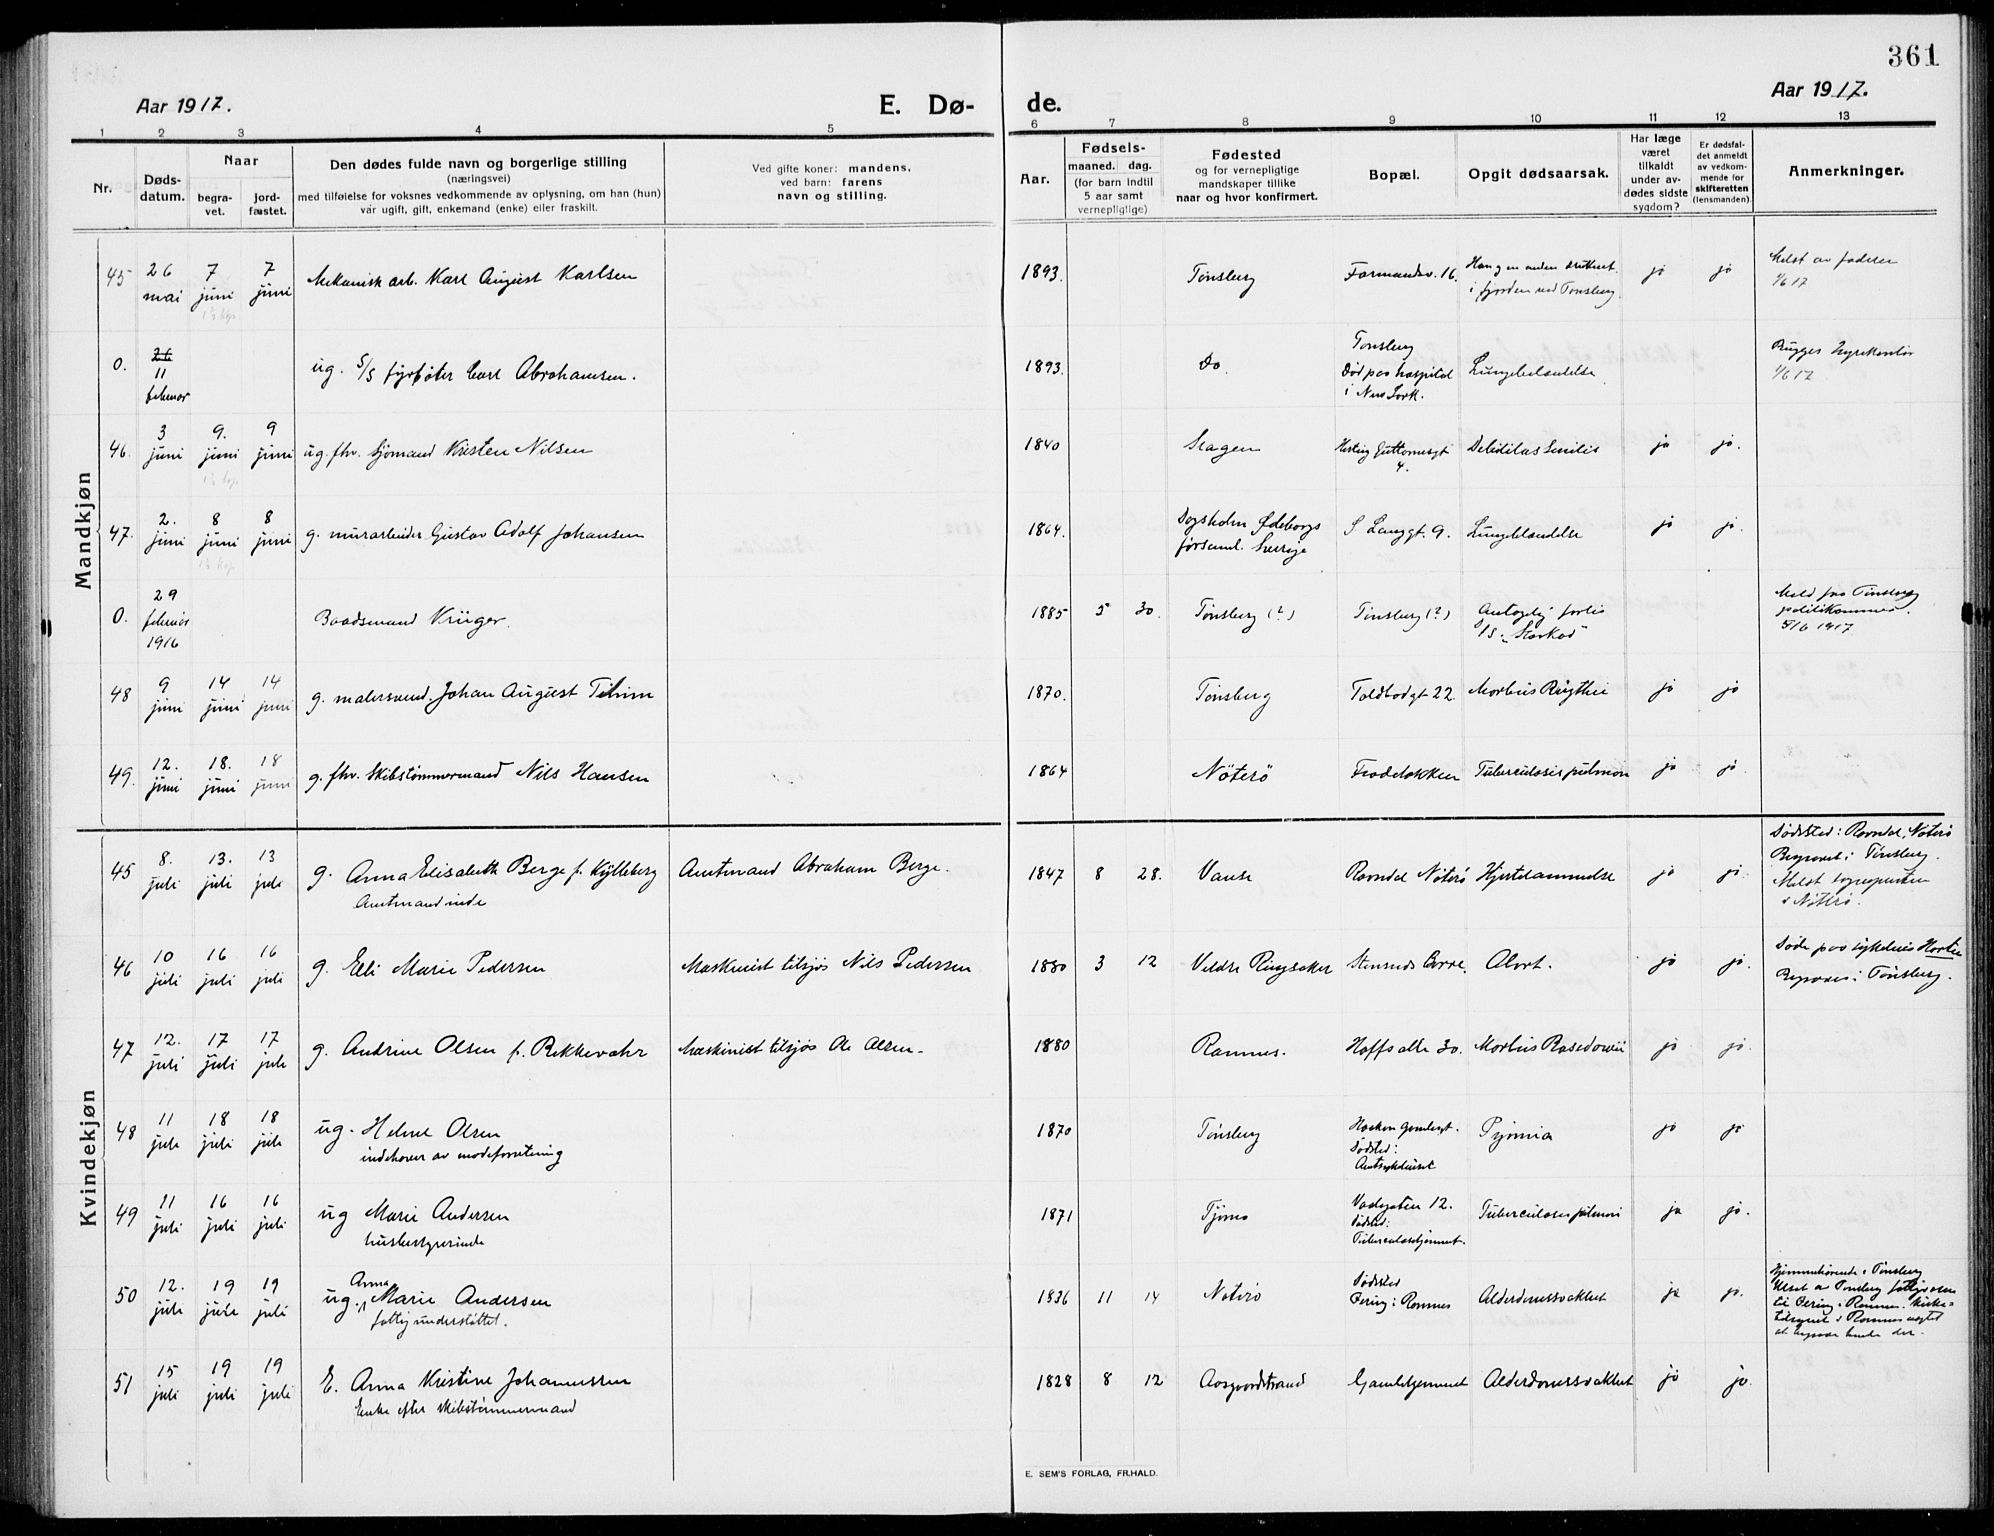 361
Aar 1917. E. Dø- de. Aar 1917.
1 2 3 4 5 6 7 8 9 10 11 12 13
Nr.
Døds-
datum.
Naar
begra-
vet.
jord-
fæstet.
Den dødes fulde navn og borgerlige stilling
(næringsvei)
med tilføielse for voksnes vedkommende av oplysning, om han (hun)
var ugift, gift, enkemand (enke) eller fraskilt.
Ved gifte koner: mandens,
ved barn: farens
navn og stilling.
Aar.
Fødsels-
maaned. dag.
(for barn indtil
5 aar samt
vernepligtige)
Fødested
og for vernepligtige
mandskaper tillike
naar og hvor konfirmert.
Bopæl.
Opgit dødsaarsak.
Har læge
været
tilkaldt
under av-
dødes sidste
sygdom?
Er dødsfal-
det anmeldt
av vedkom-
mende for
skifteretten
(lensmanden).
Anmerkninger.
Mandkjøn
45 26 mai 7 juni 7 juni Mekanisk arb. Karl August Karlsen 1893. Tønsberg Farmandsv. 16. Han g en anden druknet
i fjorden ved Tønsberg. ja ja Melst av faderen
1/6 17
0. 26
11
februar ug. S/S fyrbøter Carl Abrahamsen. 1893. Do. Tønsberg
Død paa hospital
i New York. Lungebetændelse Bugges hyrekontor
1/6 17
46. 3 juni 9. juni 9 juni ug. fhv. sjømand Kristen Nilsen 1840 Slagen Hertug Guttormsgt
4. Debilitas Senilis ja ja.
47. 2. juni 8 juni 8 juni g. murarbeider Gustav Adolf Johansen 1864. Ødeborgs
församl. Sverige S Langgt. 9. Lungebetændelse ja ja.
0. 29
februar
1916 Baadsmand Krüger. 1885 5 30. Tønsberg (?) Tønsberg (?) Antagelig forlis
S/S. "Starkad" Meld fra Tønsberg
politikammer.
5/6 1917
48 9 juni 14 juni 14 juni g. malersvend. Johan August Thim 1870. Tønsberg Toldbodgt 22. Morbus ja ja
49. 12. juni 18. juni 18 juni g. fhv. Skibstømmermand Nils Hansen 1864 Nøterø Fradeløkken Tuberculosis pulmon ja ja.
Kvindekjøn
45 8. juli 13. juli 13 juli g. Anna Elisabeth Berge f. Kylleberg
Amtmandinde Amtmand Abraham Berge. 1847 8 28. Vanse Ravndal Nøterø Hjertelammelse ja ja. Dødsted: Ravndal, Nøterø
Begravet i Tønsberg.
Melst sogneprsten
i Nøterø.
46 10 juli 16 juli 16 juli g. Elli Marie Pedersen Maskinist tilsjøs Nils Pedersen 1880 3 12 Veldre Ringsaker Stensrud Borre. Abort. ja ja. Døde paa sykehus Horten
Begraves i Tønsberg.
47 12. juli 17 juli 17 juli g. Andrine Olsen f. Rekkevahr Maskinist tilsjøs Ole Olsen. 1880 Ramnes. Hoffs alle 30. Morbus Basedowii ja ja.
48 11 juli 18 juli 18 juli ug. Helene Olsen
indehaver av modeforretning 1870 Tønsberg Haakon Gamlesgt.
Dødsted:
Amtsykehuset Pyæmia ja ja
49 11 juli 16 juli 16 juli ug Marie Andersen
husbestyrerinde 1871 Tjømø 12.
Dødsted:
Tuberculosehjemmet. Tuberculosis pulmon ja ja.
50 12. juli 19 juli 19 juli ug. Anna Marie Andersen
fattigunderstøttet. 1836 11 14 Nøterø Dødsted
Bering i Ramnes Alderdomssvakhet ja ja. Hjemmehørende i Tønsberg
Utsat av Tønsberg fattigvæsen
til Bering i Ramnes. Kirke-
tilsynet i Ramnes negtet
at begrave hende der.
51 15 juli 19 juli 19 juli E. Anna Kristine Johannessen
Enke efter skibstømmermand 1828 8 12 Aasgaardstrand Gamlehjemmet Alderdomssvakhet ja ja.
E. SEM'S FORLAG, FR.HALD.